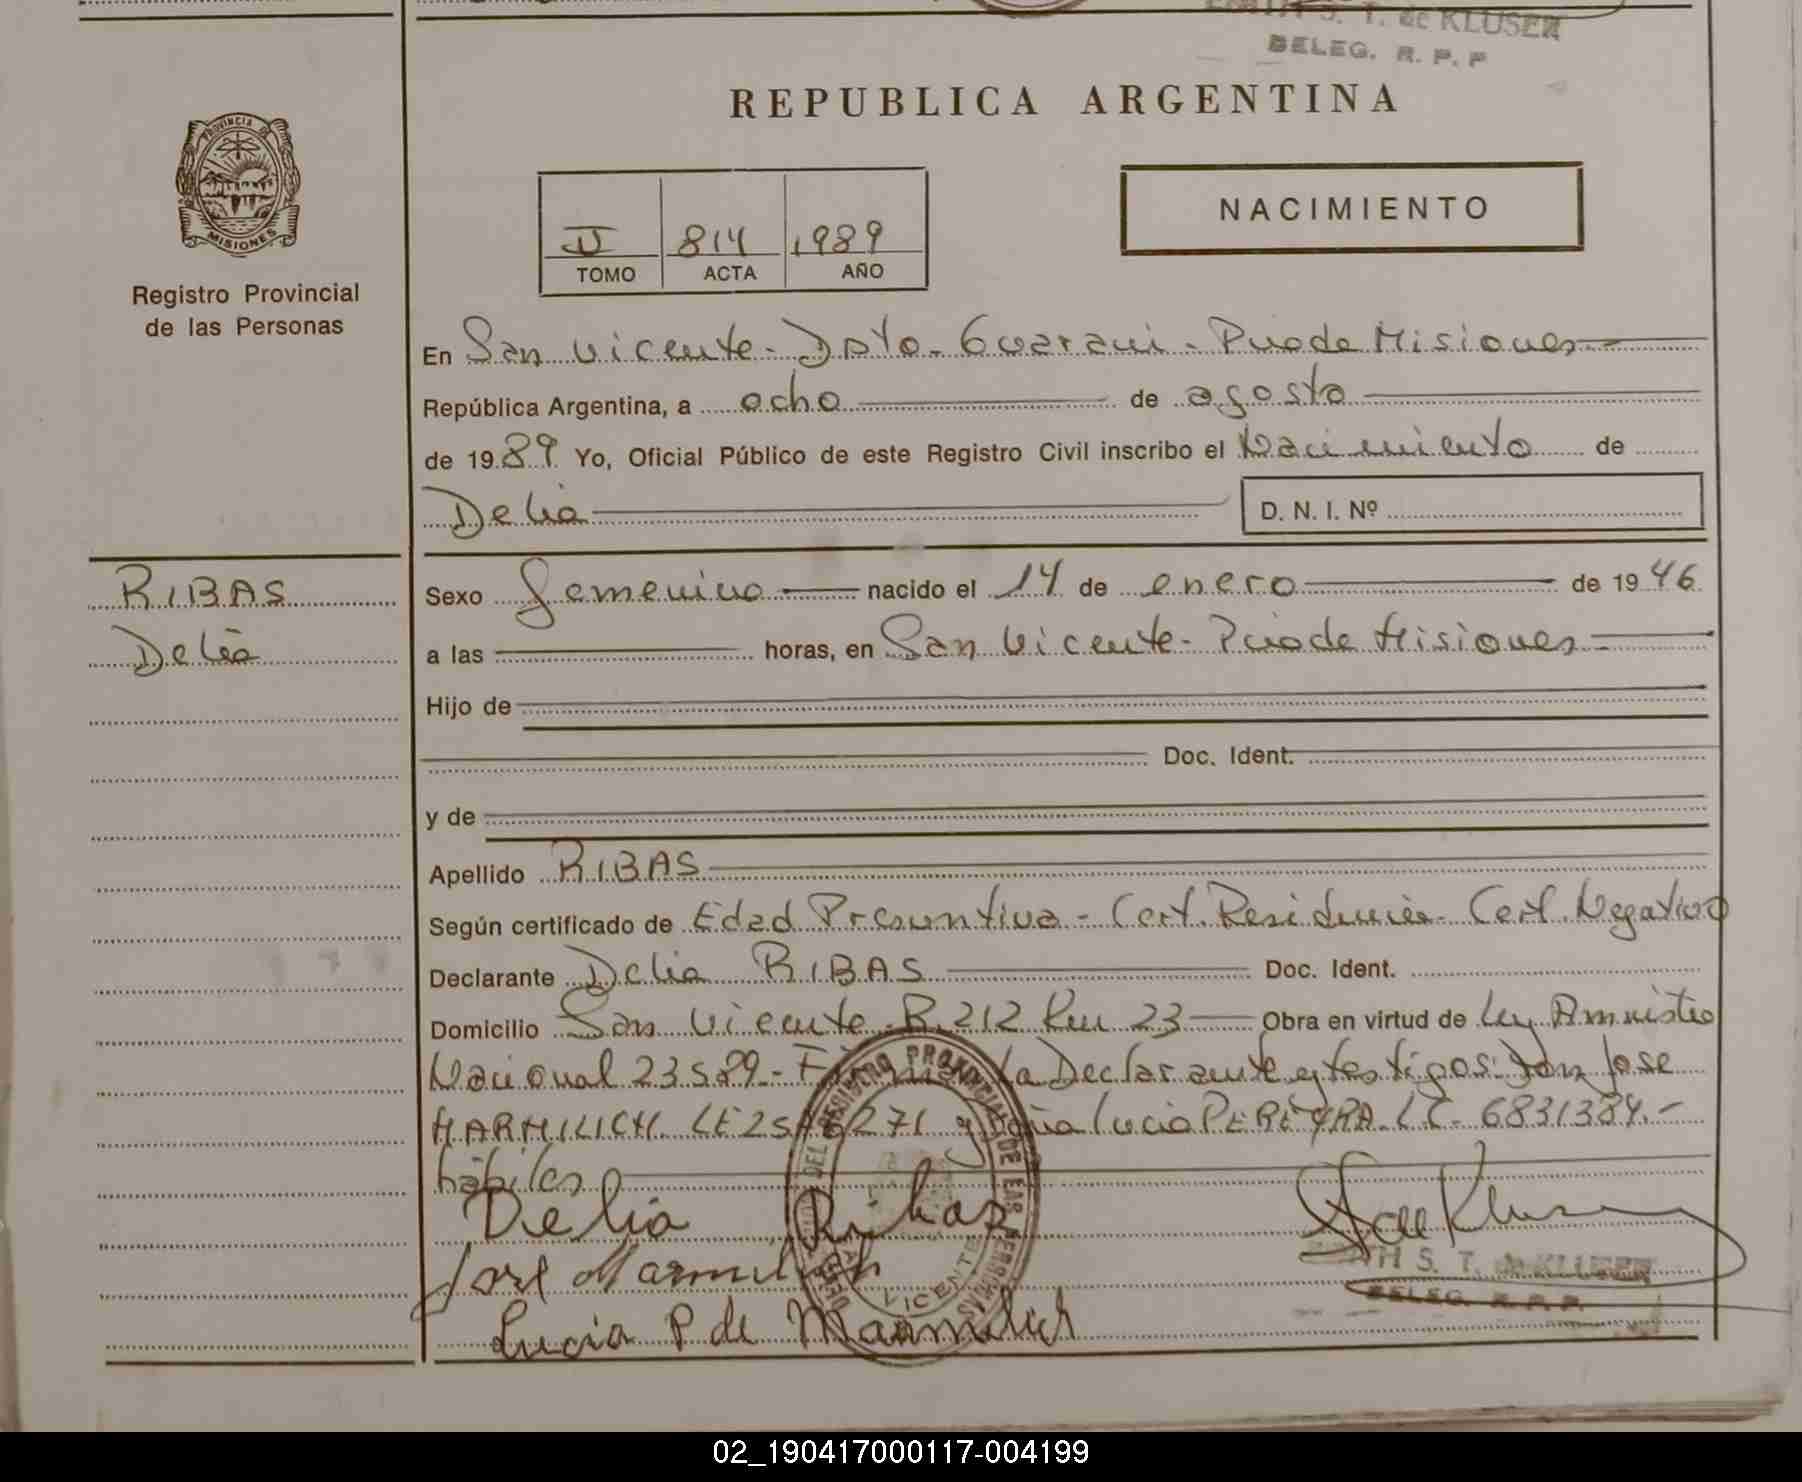 EDITH S. T. de KLUSER
DELEG. R. P. P
REPUBLICA ARGENTINA
PROVINCIA DE
MISIONES
Registro Provincial
de las Personas
II 814 1989
TOMO ACTA AÑO
NACIMIENTO
En San Vicente - Dpto. Guarani - Pvia de Misiones
República Argentina, a ocho de agosto
de 1989 Yo, Oficial Público de este Registro Civil inscribo el Nacimiento de
Delia D. N. I. Nº
RIBAS
Delia
Sexo Femenino nacido el 14 de enero de 1946
a las horas, en San Vicente - Pcia de Misiones
Hijo de
Doc. Ident.
y de
Apellido RIBAS
Según certificado de Edad Presuntiva - Cert. Residencia - Cert. Negativo
Declarante Delia RIBAS Doc. Ident.
Domicilio San Vicente - R. 212 Km 23 Obra en virtud de Ley Amnistia
Nacional 23589.- La Declarante y testigos: Don Jose
MARMILICH LE 271 y Doña Lucia PEREYRA L C - 6831384.-
hábiles
Delia Ribas
Jose Marmilich
Lucia P de Marmilich
EDITH S. T. de KLUSER
DELEG. R. P. P.
DEL REGISTRO PROVINCIAL DE LAS PERSONAS
VICENTE
02_190417000117-004199